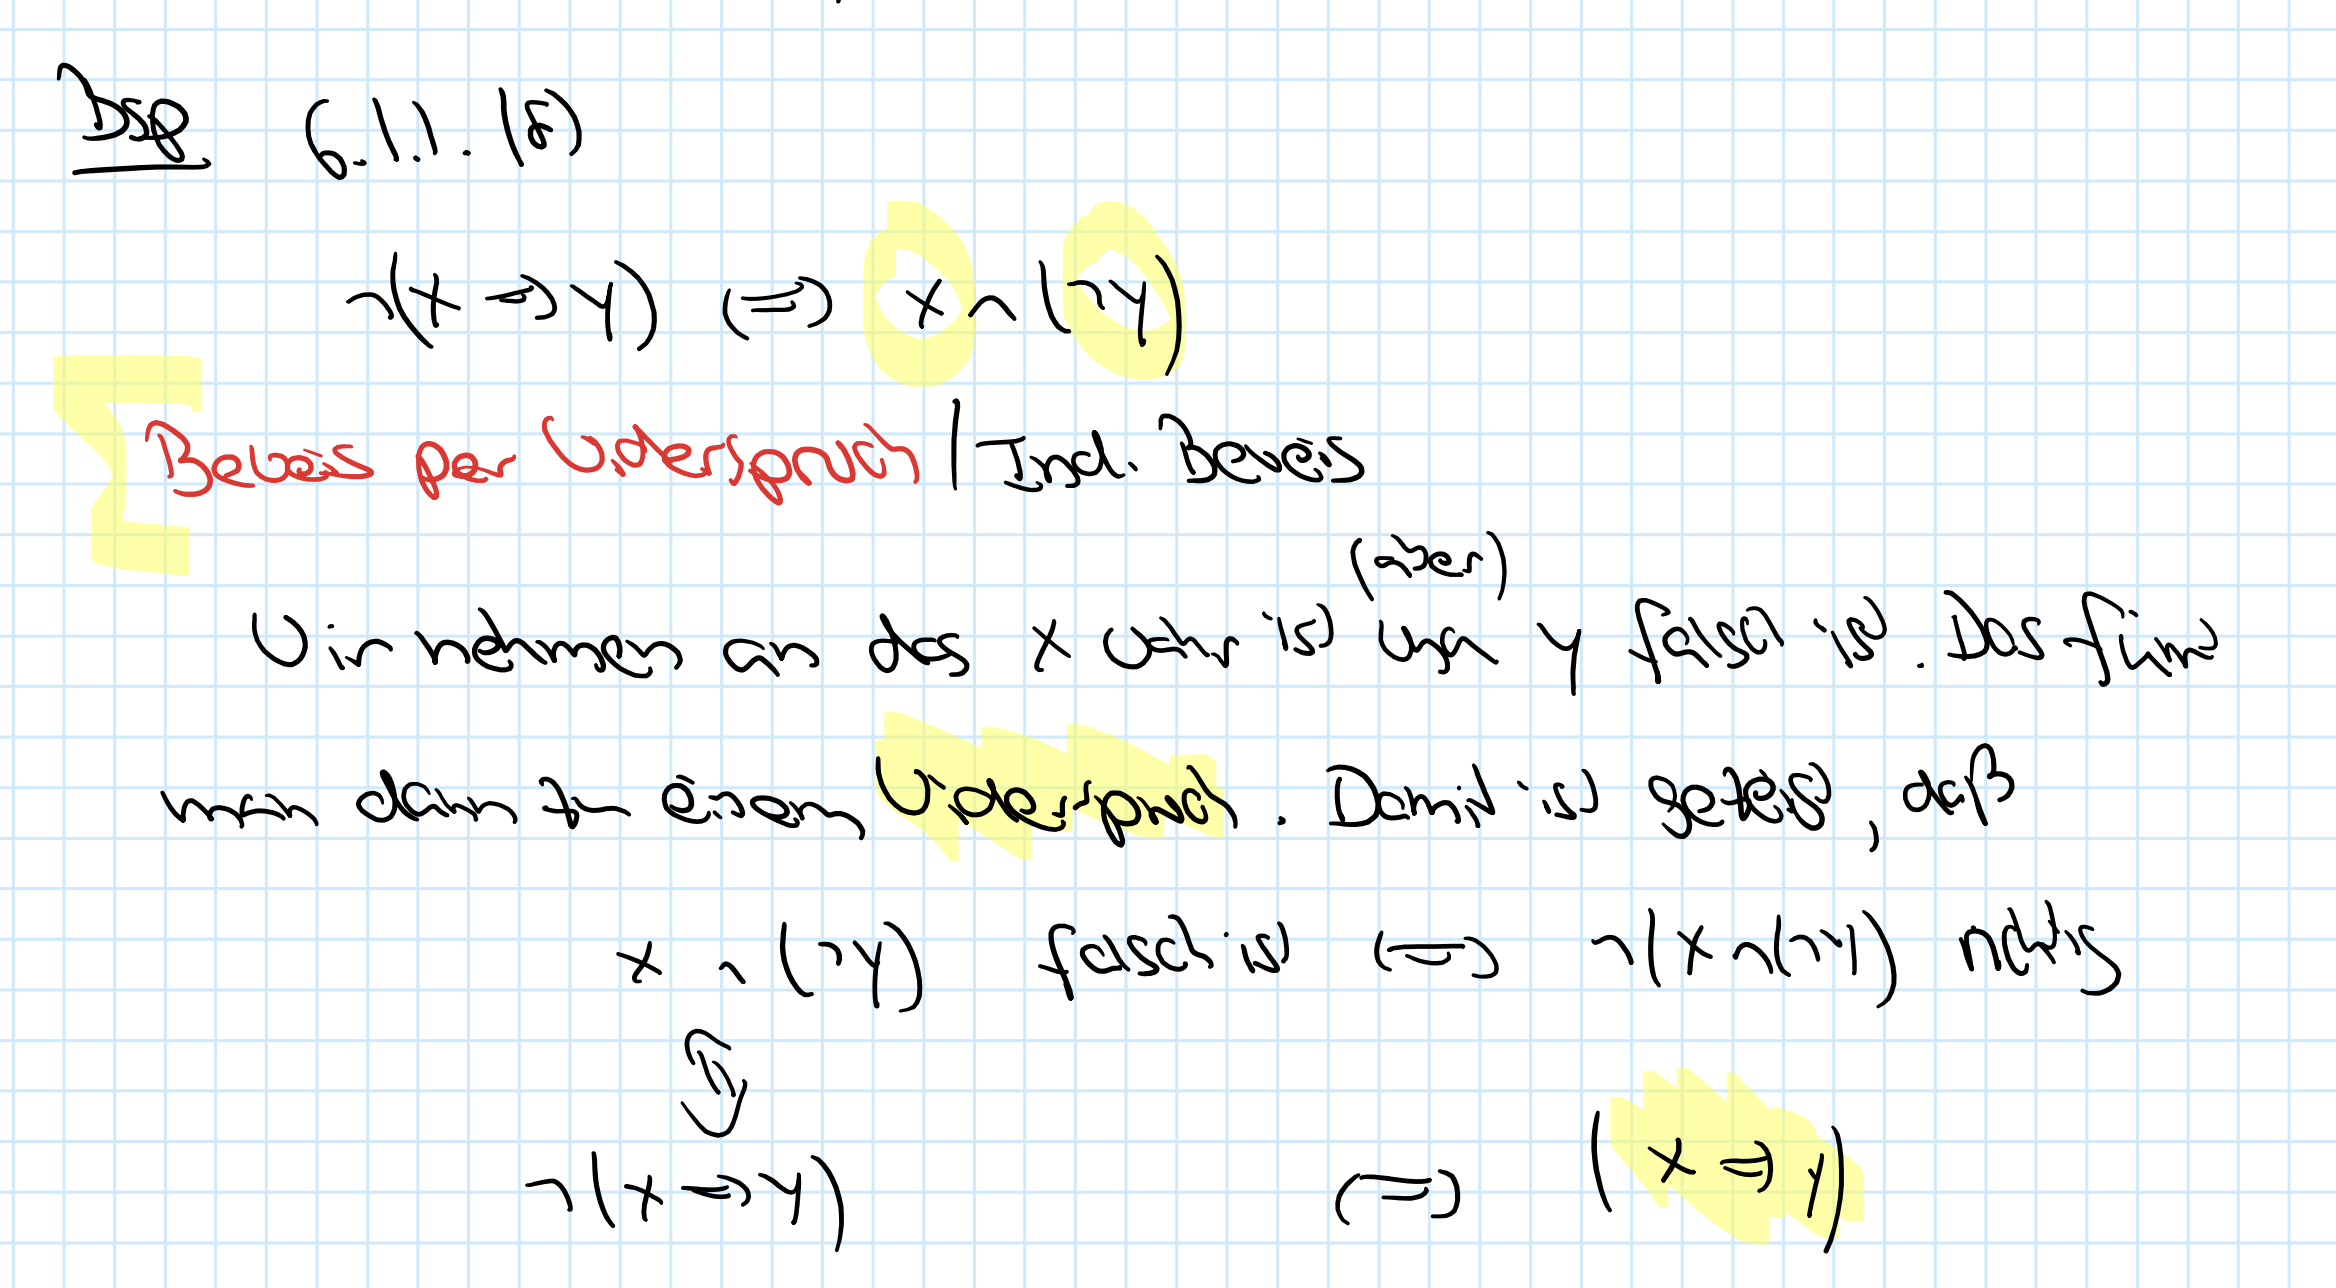 Bsp 6.1.1. (8)
¬(x ⇒ y) ⇔ x ∧ (¬y)
Beweis per Widerspruch | Ind. Beweis
(aber)
Wir nehmen an das x wahr ist und y falsch ist. Das führt
man dann zu einem Widerspruch. Damit ist gezeigt, daß
x ∧ (¬y) falsch ist ⇔ ¬(x ∧ (¬y)) richtig
⇕
¬(x ⇒ y) ⇔ (x ⇒ y)